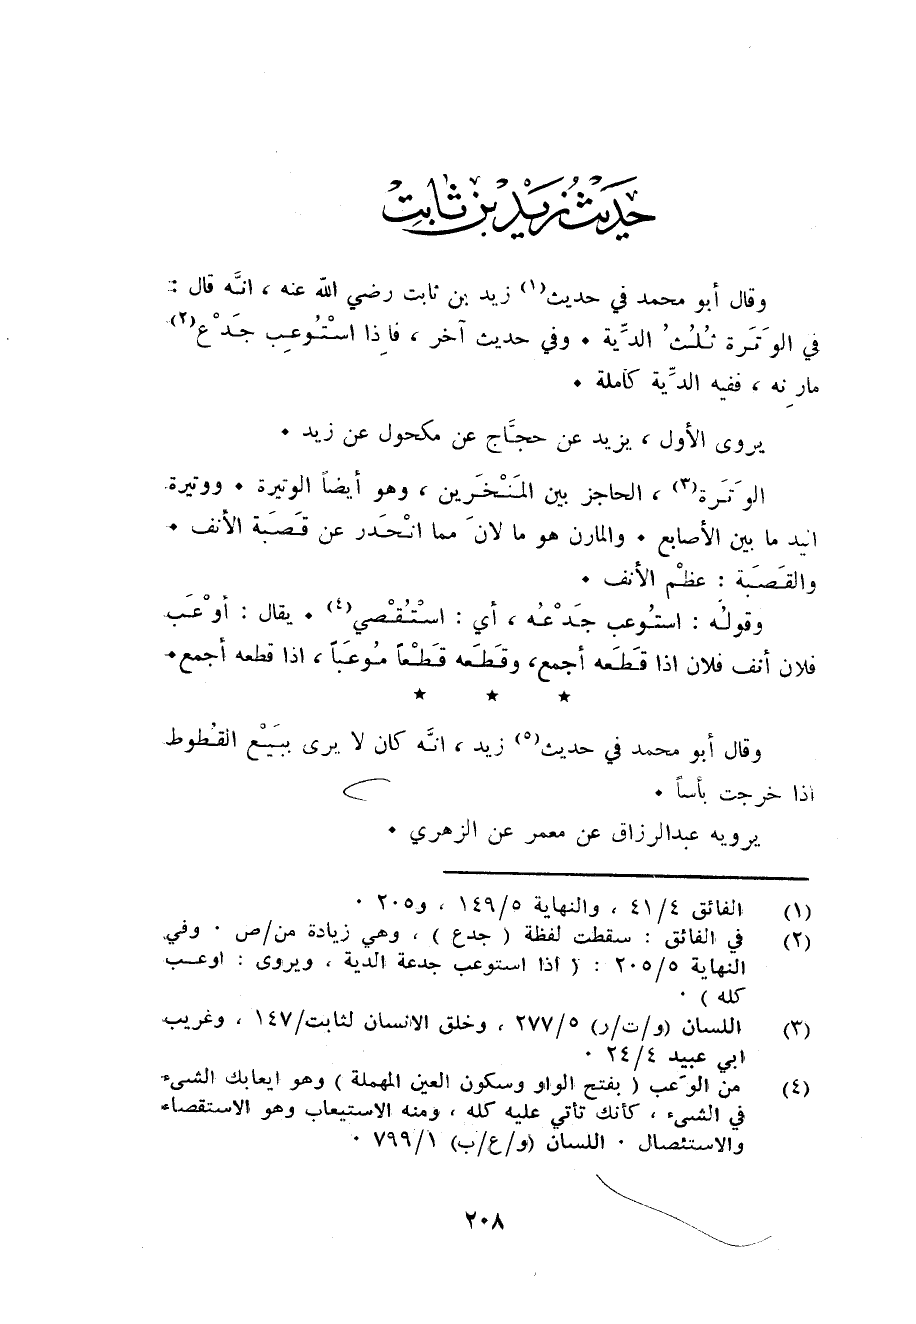 حديث زيد بن ثابت
وقال أبو محمد في حديث(١) زيد بن ثابت رضي الله عنه ، انَّه قال :
في الوَتَرة ثُلُثُ الدِّية ٠ وفي حديث آخر ، فاِذا اسْتُوعِب جَدْع(٢)
مارِنه ، ففيه الدِّية كاملة ٠
يروى الأول ، يزيد عن حجَّاج عن مكحول عن زيد ٠
الوَتَرة(٣) ، الحاجز بين المَنْخَرين ، وهو أيضاً الوتيرة ٠ ووتيرة
اليد ما بين الأصابع ٠ والمارن هو ما لانَ مما انْحَدر عن قَصَبة الأنف ٠
والقَصَبة : عظْم الأنف ٠
وقولُه : استُوعب جَدْعُه ، أي : اسْتُقْصي(٤) ٠ يقال : أوْعَب
فلان أنف فلان اذا قَطَعه أجمع، وقَطَعه قَطْعاً مُوعَباً ، اذا قطعه أجمع٠
★ ★ ★
وقال أبو محمد في حديث(٥) زيد ، انَّه كان لا يرى ببَيْع القُطوط
اذا خرجت بأساً ٠
يرويه عبدالرزاق عن معمر عن الزهري ٠
(١) الفائق ٤/٤١ ، والنهاية ٥/١٤٩ ، و٢٠٥ ٠
(٢) في الفائق : سقطت لفظة ( جدع ) ، وهي زيادة من/ص ٠ وفي
النهاية ٥/٢٠٥ : ( اذا استوعب جدعة الدية ، ويروى : اوعب
كله ) ٠
(٣) اللسان (و/ت/ر) ٥/٢٧٧ ، وخلق الانسان لثابت/١٤٧ ، وغريب
ابي عبيد ٤/٢٤ ٠
(٤) من الوَعب ( بفتح الواو وسكون العين المهملة ) وهو ايعابك الشيء
في الشيء ، كأنك تأتي عليه كله ، ومنه الاستيعاب وهو الاستقصاء
والاستئصال ٠ اللسان (و/ع/ب) ١/٧٩٩ ٠
٢٠٨